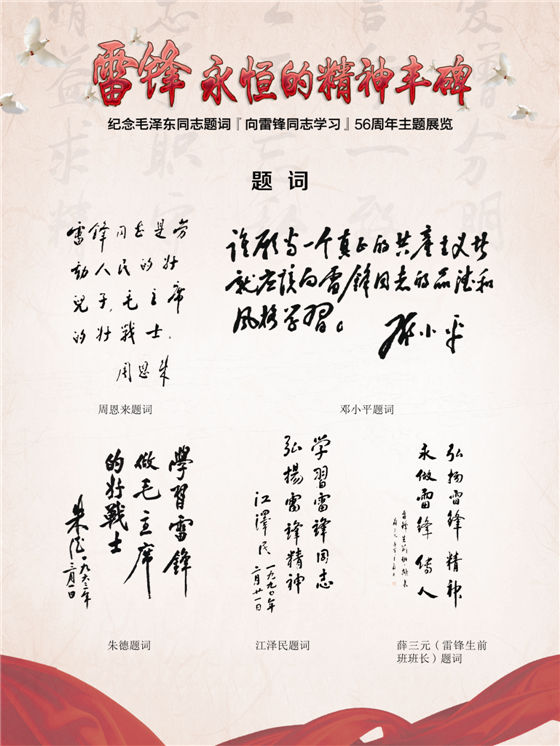 雷锋 永恒的精神丰碑
纪念毛泽东同志题词『向雷锋同志学习』56周年主题展览
题词
雷锋同志是劳
动人民的好
儿子,毛主席
的好战士.
周恩来
周恩来题词
谁愿当一个真正的共产主义者
就应该向雷锋同志的品德和
风格学习。
邓小平
邓小平题词
學習雷鋒
做毛主席
的好戰士
朱德
一九六三年
三月一日
朱德题词
学習雷锋同志
弘揚雷锋精神
江澤民
一九九〇年
二月廿一日
江泽民题词
弘扬雷锋精神
永做雷锋传人
薛三元(雷锋生前
班班长)题词